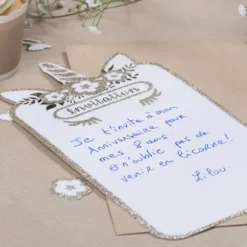 Invitation
Je t'invite à mon
Anniversaire pour
mes 8 ans!
N'oublie pas de
venir en licorne!
Lilou